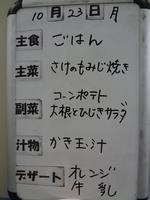 10月23日月
主食 ごはん
主菜 さけのもみじ焼き
副菜 コーンポテト
大根とひじきサラダ
汁物 かき玉汁
デザート オレンジ
牛乳